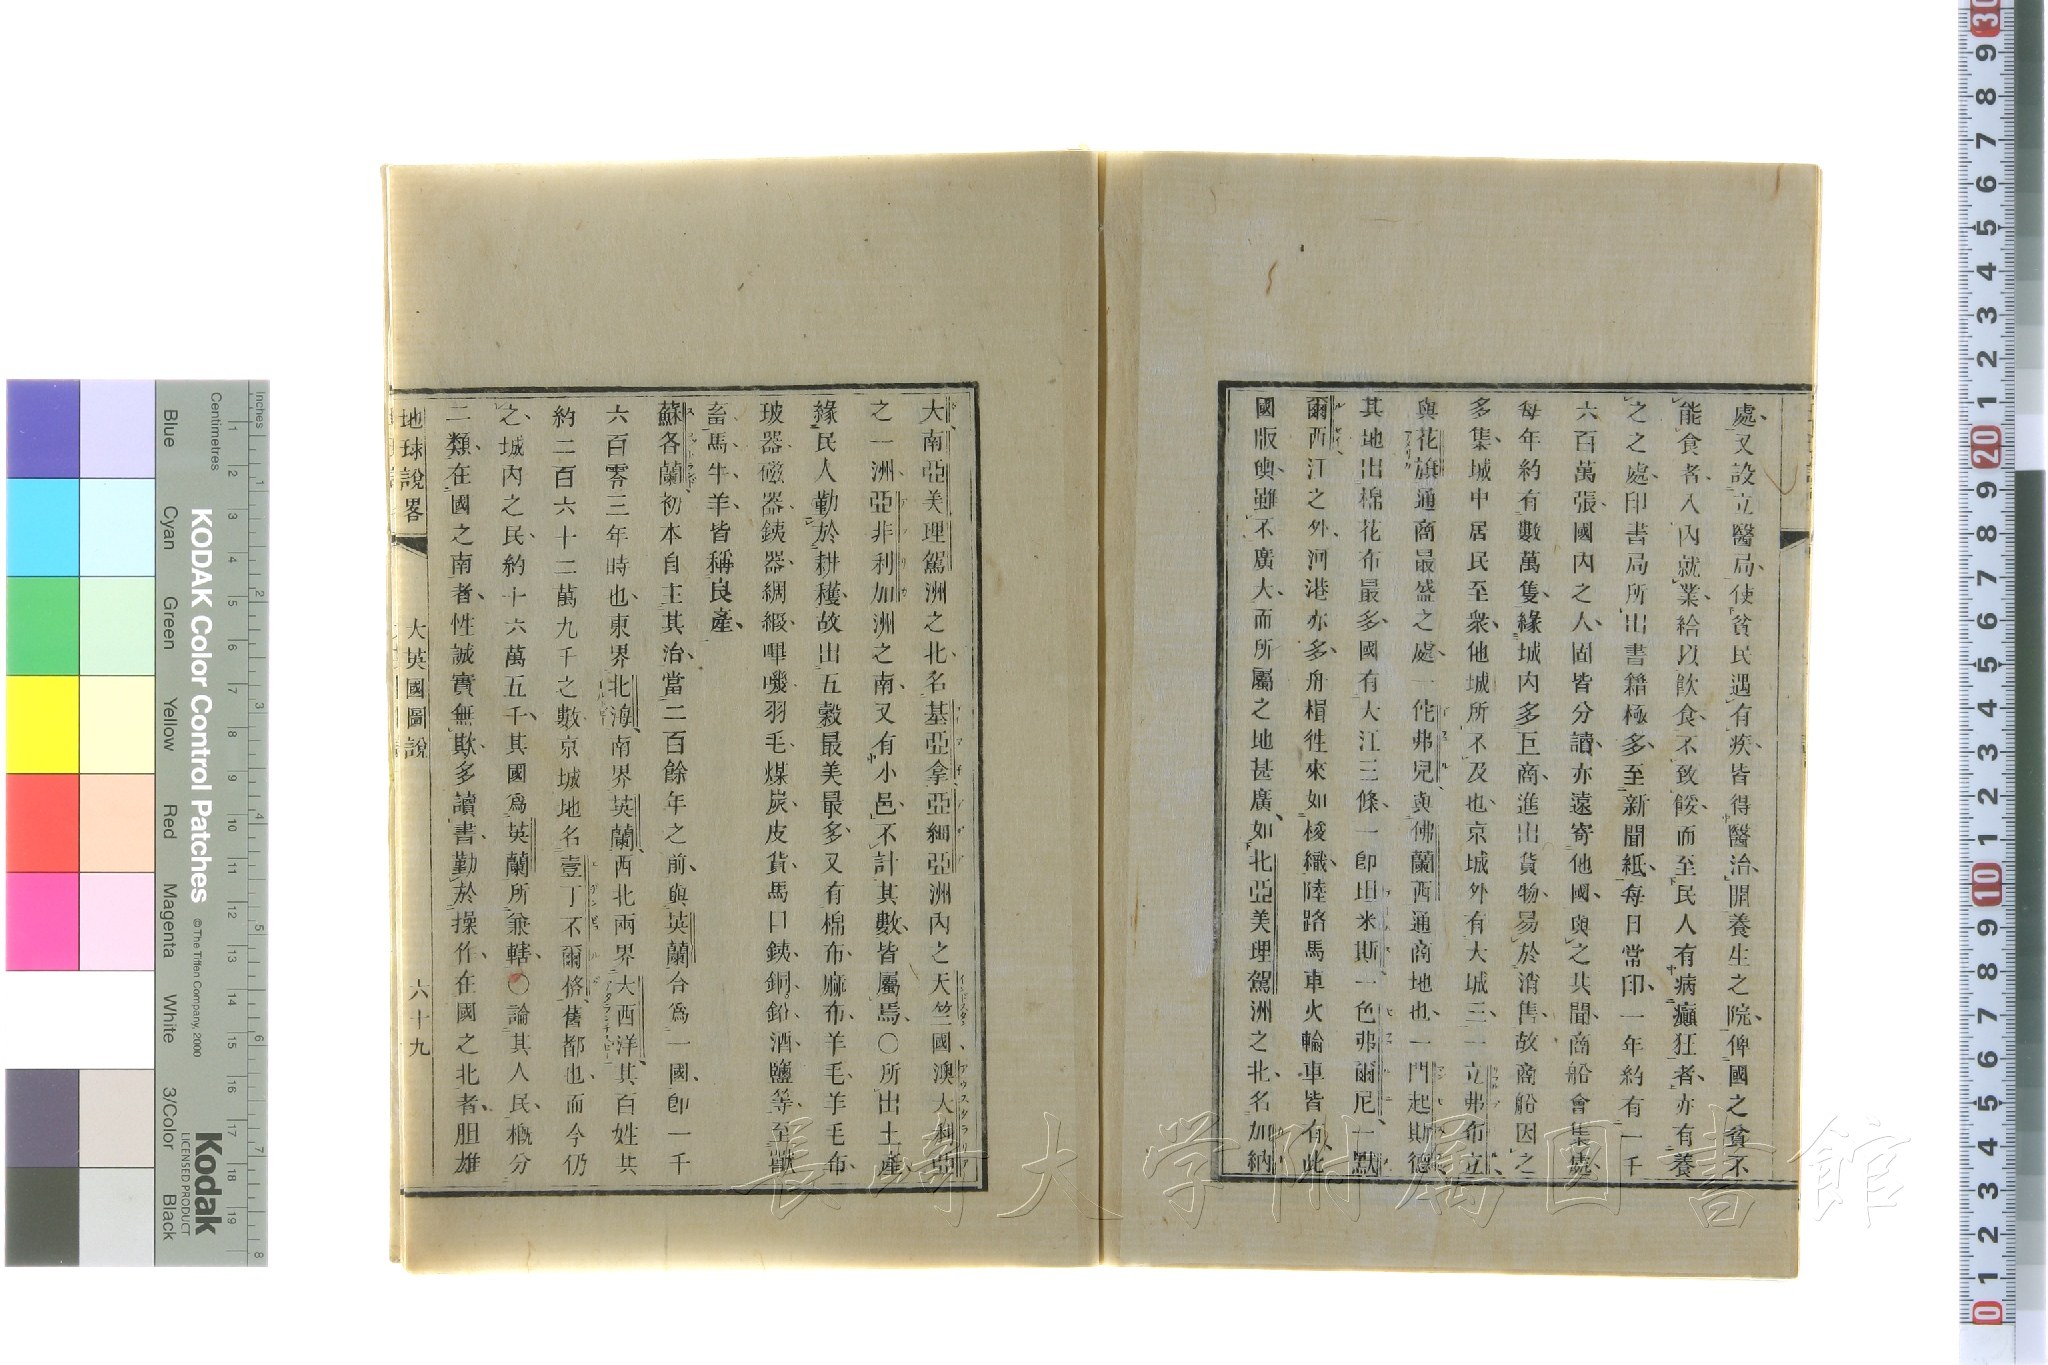 處、又設立醫局、使貧民遇有疾、皆得醫治、開養生之院、俾國之貧不
能食者、入內就業、給以飲食、不致餒、而至民人有病癲狂者、亦有養
之之處、印書局所出書籍極多、至新聞紙、每日常印、一年約有一千
六百萬張、國內之人、固皆分讀、亦遠寄他國、與之共聞、商船會集處、
每年約有數萬隻、緣城內多巨商、進出貨物、易於消售、故商船因之
多集、城中居民至衆、他城所不及也、京城外有大城三、一立弗布立
與花旗通商最盛之處、一佗弗兒、與佛蘭西通商地也、一門起斯德
其地出棉花布最多、國有大江三條、一卽坦米斯、一色弗爾尼、一默
爾西、江之外、河港亦多、舟楫徃來如梭織、陸路馬車火輪車皆有、此
國版輿雖不廣大、而所屬之地甚廣、如北亞美理駕洲之北、名加納
大、南亞美理駕洲之北、名基亞拿、亞細亞洲內之天竺國、澳大利亞
之一洲、亞非利加洲之南、又有小邑、不計其數、皆屬焉、〇所出土產、
緣民人勤於耕穫、故出五穀最美最多、又有棉布、麻布、羊毛、羊毛布、
玻器、磁器、銕器、綢緞、嗶嘰、羽毛、煤炭、皮貨、馬口銕、銅、鉛、酒、鹽等、至獸
畜、馬、牛、羊、皆稱良產、
蘇各蘭初本自主其治、當二百餘年之前、與英蘭合爲一國、卽一千
六百零三年時也、東界北海、南界英蘭、西北兩界大西洋、其百姓共
約二百六十二萬九千之數、京城地名壹丁不爾格、舊都也、而今仍
之、城內之民、約十六萬五千、其國爲英蘭所兼轄、〇論其人民、槪分
二類、在國之南者、性誠實無欺、多讀書、勤於操作、在國之北者、胆雄
地球說畧
大英國圖說
六十九
長崎大学附属図書館
KODAK Color Control Patches
© The Tiffen Company, 2000
Kodak
LICENSED PRODUCT
Inches
Centimetres
Blue
Cyan
Green
Yellow
Red
Magenta
White
3/Color
Black